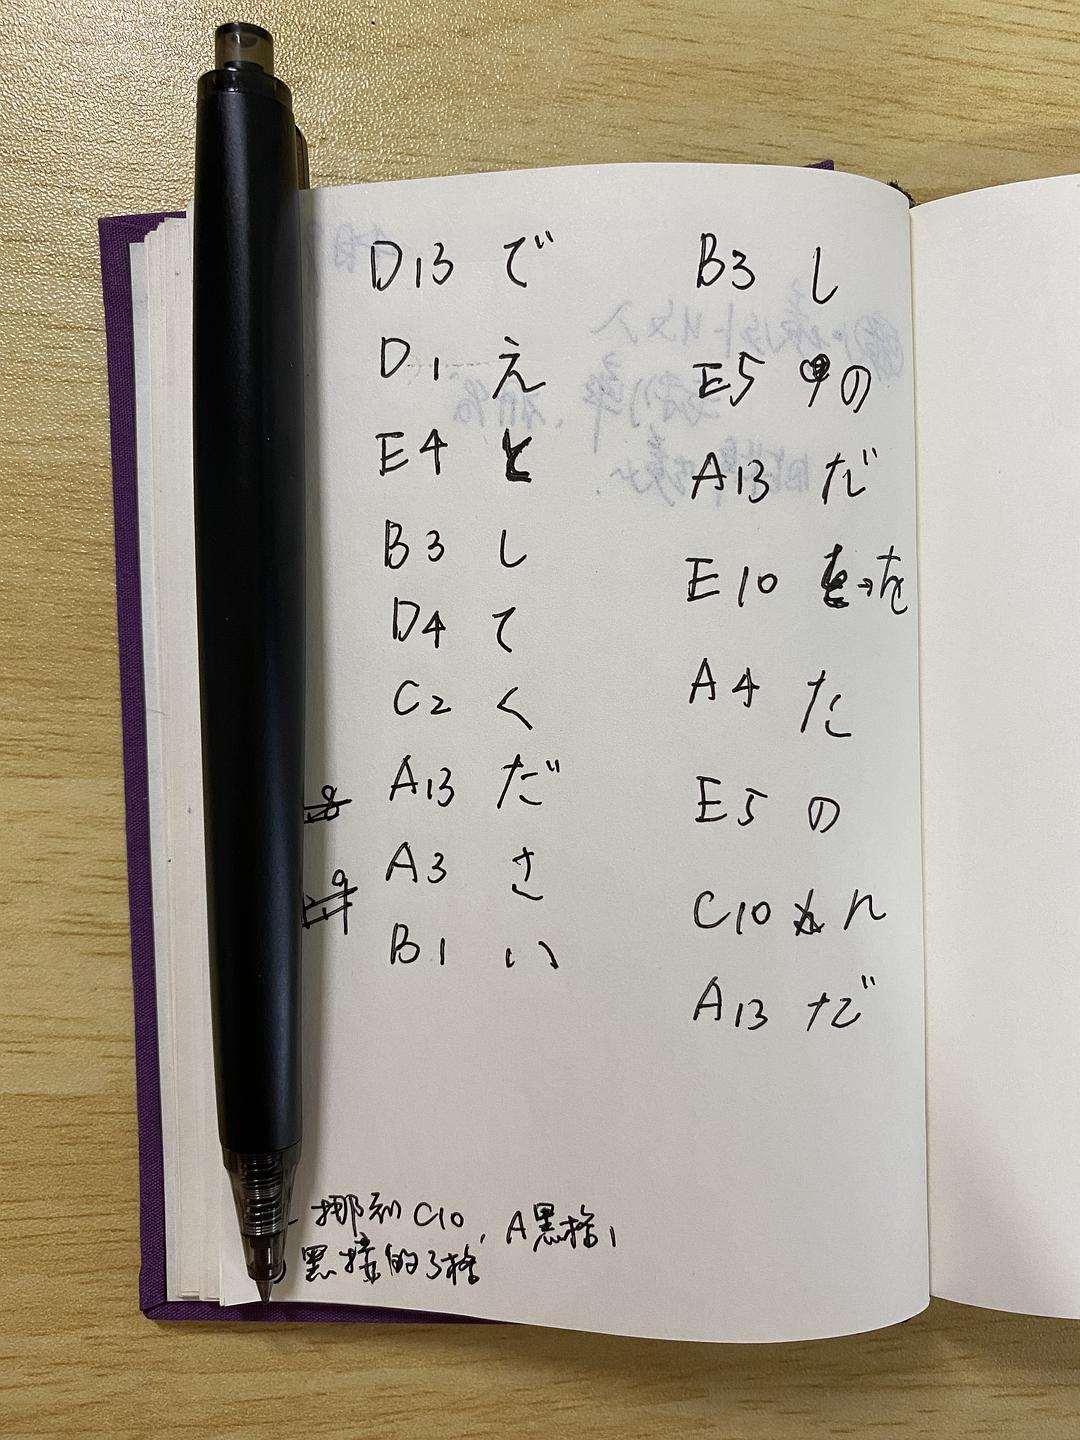 D13 で
D1 え
E4 と
B3 し
D4 て
C2 く
A13 だ
A3 さ
B1 い
B3 し
E5 の
A13 だ
E10 を→を
A4 た
E5 の
C10 ん
A13 だ
挪到C10, A黑格1
黑接的3格